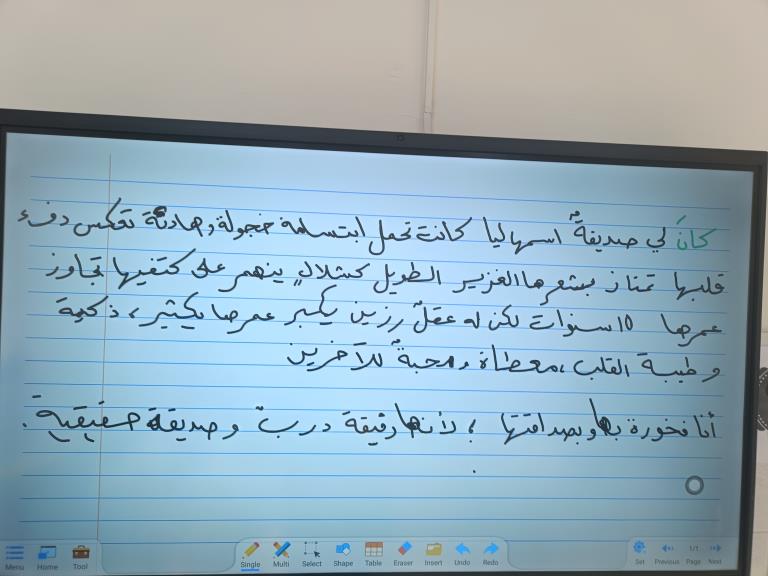 كانَ لي صديقةٌ اسمها ليا كانت تحمل ابتسامة خجولة وهادئة تعكس دفء
قلبها تمتاز بشعرها الغزير الطويل كشلالٍ ينهمر على كتفيها تجاوز
عمرها 10 سنوات لكن له عقلٌ رزين يكبر عمرها بكثير، ذكية
وطيبة القلب، معطاة، ومحبةٌ للآخرين
أنا فخورة بها وبصداقتها ؛ لأنها رفيقة دربٌ وصديقة حقيقيةً.
Menu Home Tool Single Multi Select Shape Table Eraser Insert Undo Redo Set Previous 1/1 Page Next